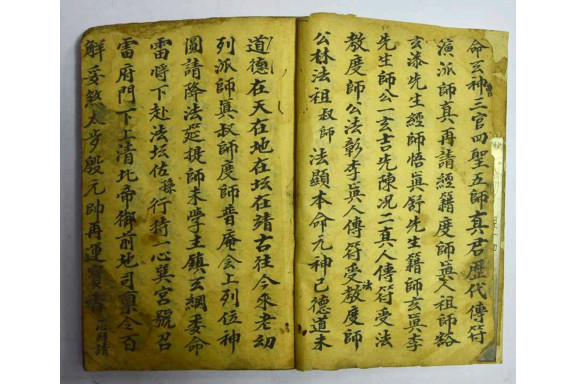 命玄神三官四聖五師真君歷代傳符
演派師真再請經籍度師真人祖師谿
玄漆先生經師悟真舒先生籍師玄真李
先生師公一玄吉先陳況二真人傳符受法
教度師公法彰李真人傳符受法教度師
公林法祖叔師法顯本命元神已德道未
道德在天在地在坛在靖古往今來老幼
列派師真叔師度師普庵会上列位神
圖請降法筵提師未學主鎮玄綱委命
雷將下赴法坛佑孫行持一心奠宮號召
雷府門下上清北帝衙前地司禀令百
解煞太歩殷元帥再運寶香心拜請